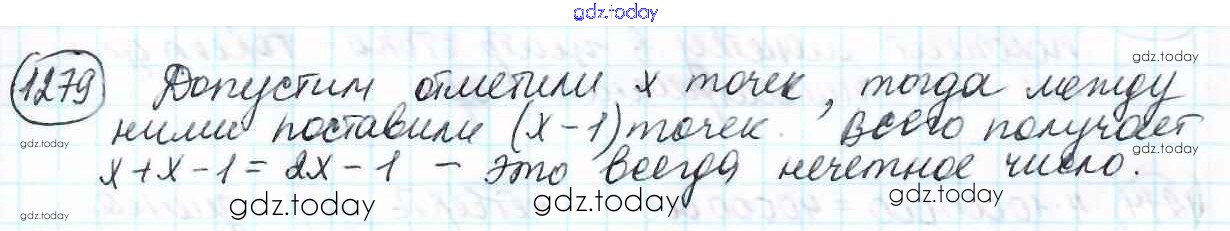 gdz.today
1279 Допустим отметили x точек, тогда между
gdz.today
ними поставили (x-1) точек. Всего получает
gdz.today gdz.today
x+x-1=2x-1 - это всегда нечетное число.
gdz.today gdz.today gdz.today gdz.today